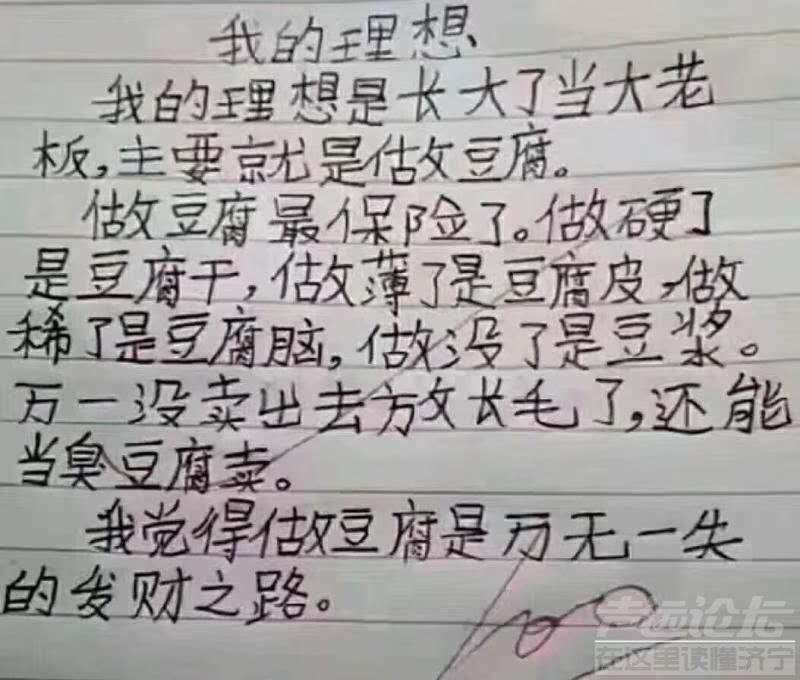 我的理想
我的理想是长大了当大老
板,主要就是做豆腐。
做豆腐最保险了。做硬了
是豆腐干,做薄了是豆腐皮,做
稀了是豆腐脑,做没了是豆浆。
万一没卖出去放长毛了,还能
当臭豆腐卖。
我觉得做豆腐是万无一失
的发财之路。
在这里读懂济宁